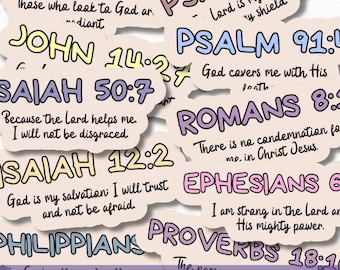 Those who look to God are
radiant.
PSALM
Lord is my
my shield
JOHN 14:27
PSALM 91:4
God covers me with His
ISAIAH 50:7
Because the Lord helps me,
I will not be disgraced.
ROMANS 8:
There is no condemnation for
me in Christ Jesus.
ISAIAH 12:2
God is my salvation; I will trust
and not be afraid.
EPHESIANS 6
I am strong in the Lord and
His mighty power.
PHILIPPIANS
PROVERBS 18:10
The name